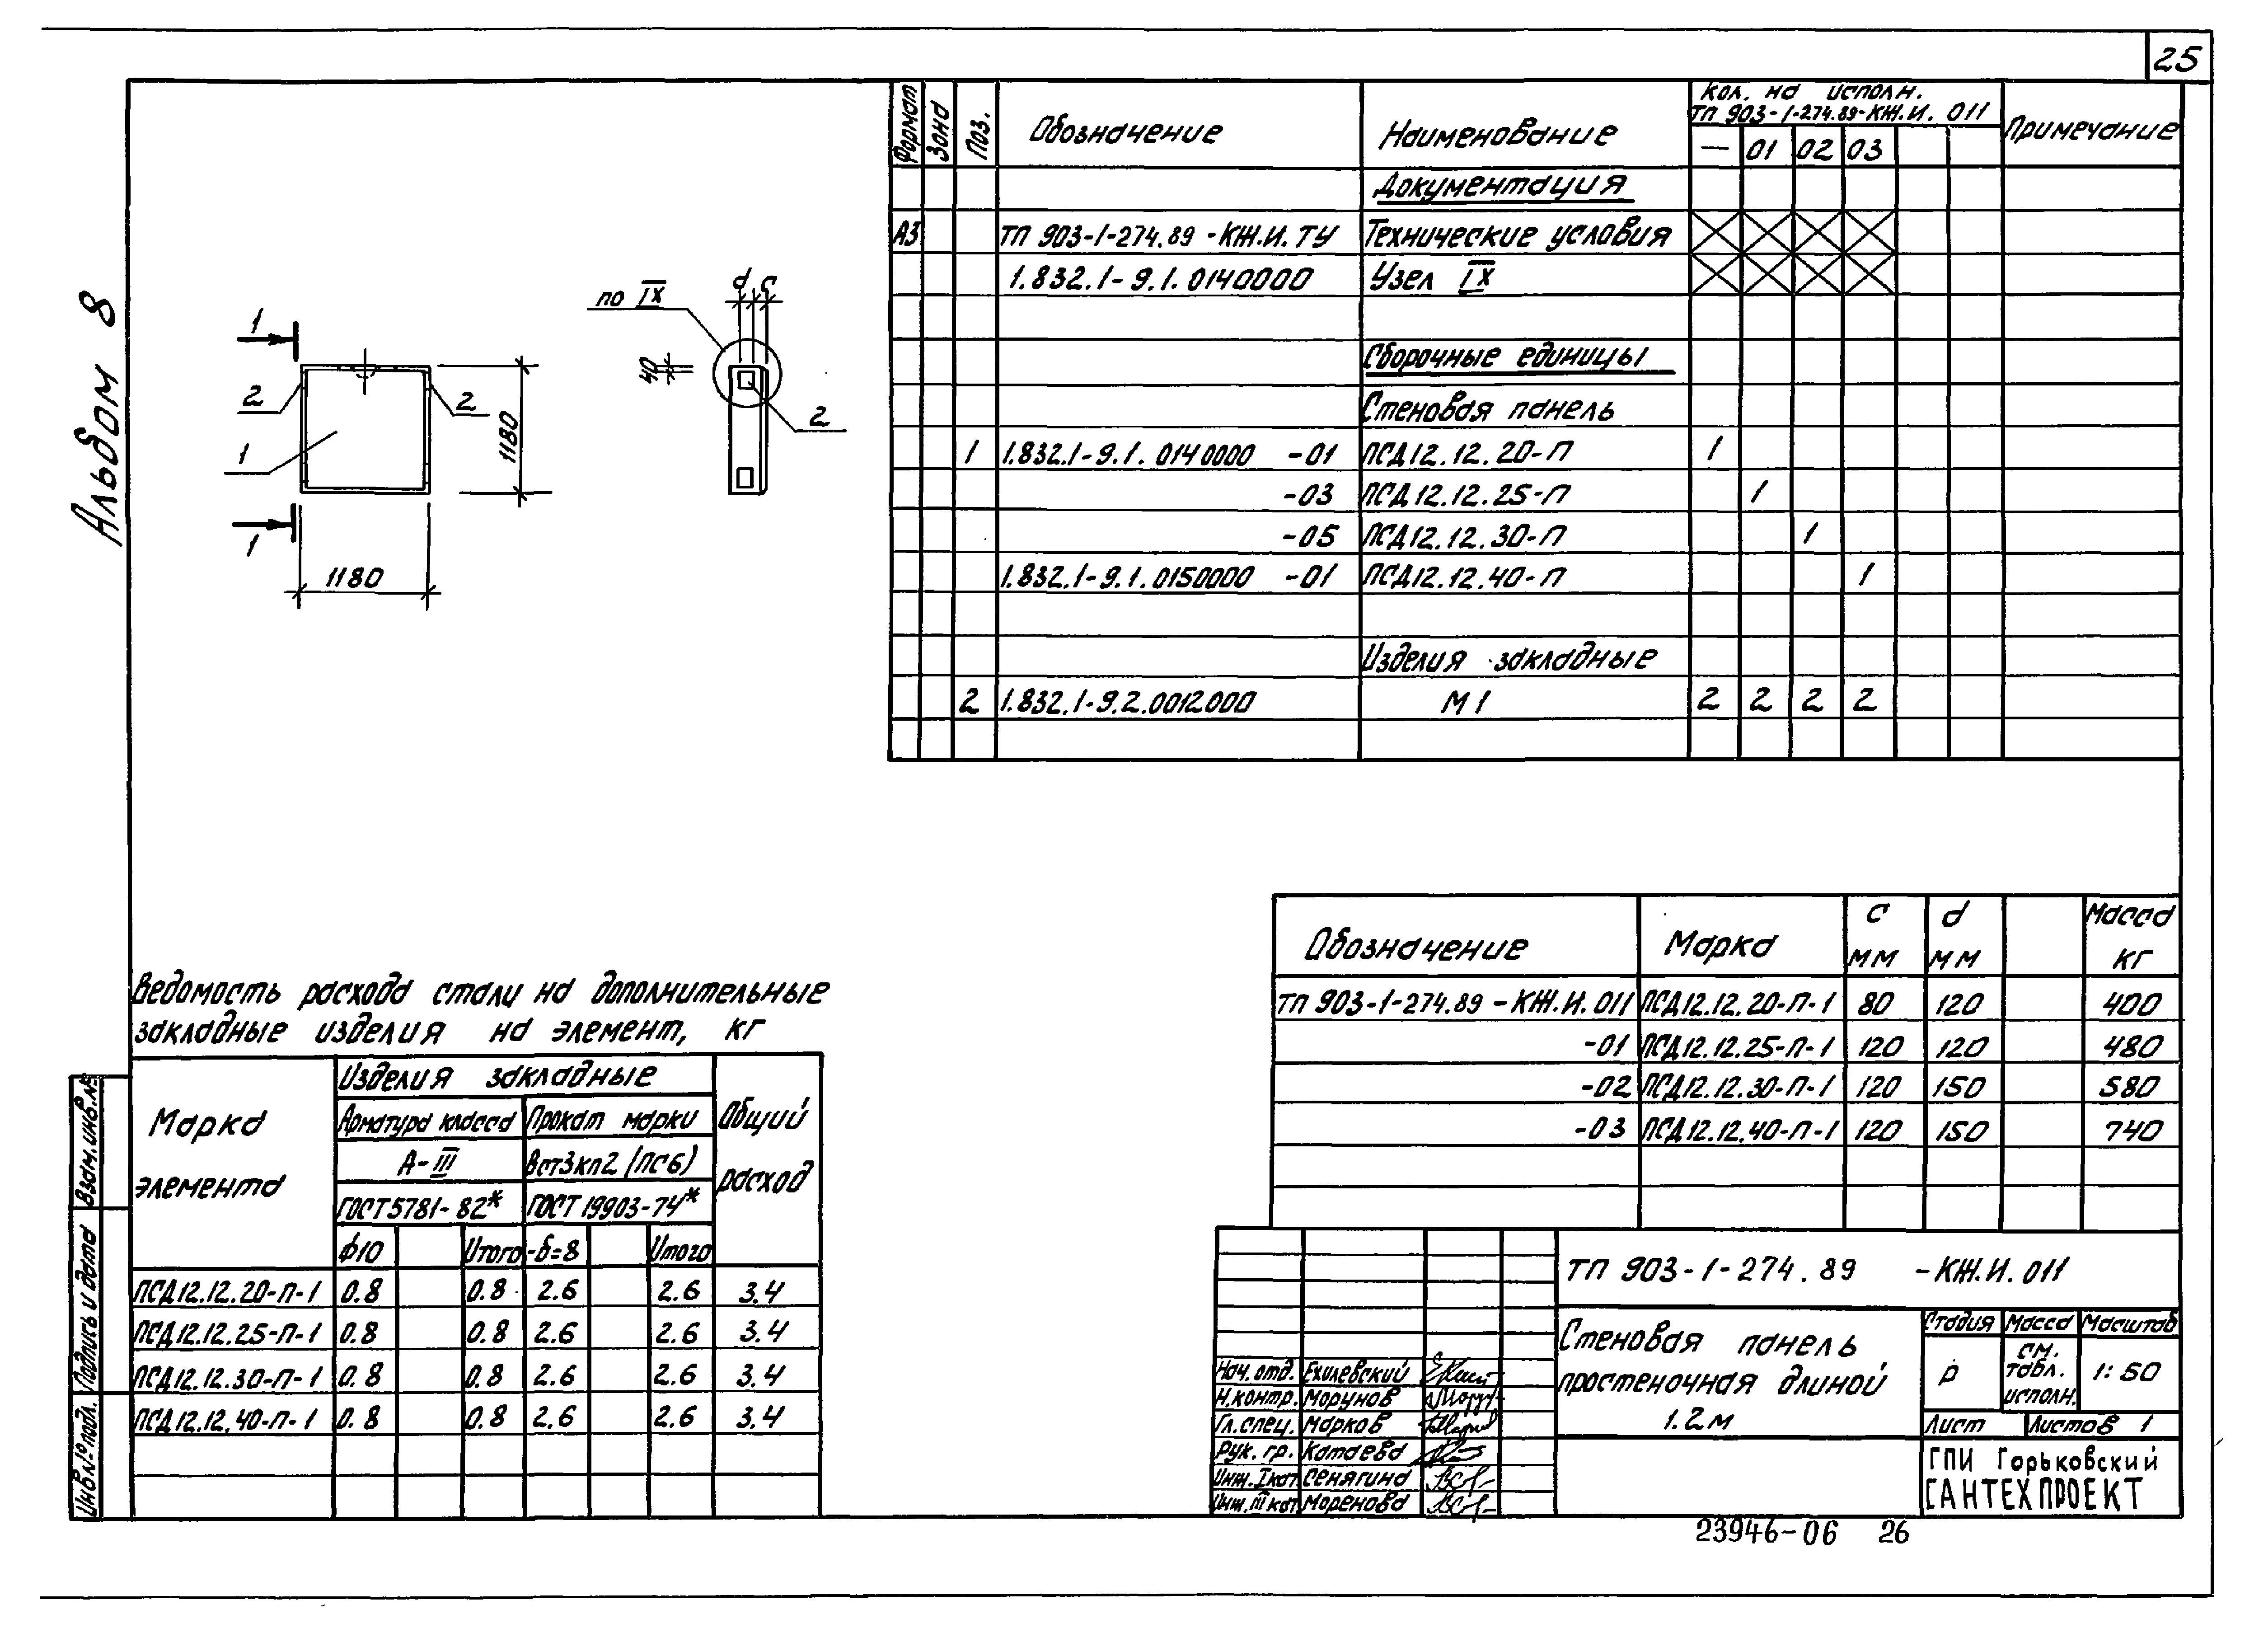 25
Альбом 8
Формат Зона Поз. Обозначение Наименование Кол. на исполн. Примечание
ТП 903-1-274.89-КЖ.И. 011
— 01 02 03
Документация
А3 ТП 903-1-274.89 -КЖ.И. ТУ Технические условия
1.832.1-9.1.0140000 Узел IX
Сборочные единицы
Стеновая панель
1 1.832.1-9.1.0140000 -01 ПСД12.12.20-П 1
-03 ПСД12.12.25-П 1
-05 ПСД12.12.30-П 1
1.832.1-9.1.0150000 -01 ПСД12.12.40-П 1
Изделия закладные
2 1.832.1-9.2.0012000 М1 2 2 2 2
1
2
2
1
1180
1
1180
по IX
d c
40
2
Обозначение Марка c мм d мм Масса кг
ТП 903-1-274.89 -КЖ.И. 011 ПСД12.12.20-П-1 80 120 400
-01 ПСД12.12.25-П-1 120 120 480
-02 ПСД12.12.30-П-1 120 150 580
-03 ПСД12.12.40-П-1 120 150 740
Ведомость расхода стали на дополнительные
закладные изделия на элемент, кг
Марка элемента Изделия закладные Общий расход
Арматура класса Прокат марки
А-III Вст3кп2 (ПС6)
ГОСТ 5781-82* ГОСТ 19903-74*
ф10 Итого -δ=8 Итого
ПСД12.12.20-П-1 0.8 0.8 2.6 2.6 3.4
ПСД12.12.25-П-1 0.8 0.8 2.6 2.6 3.4
ПСД12.12.30-П-1 0.8 0.8 2.6 2.6 3.4
ПСД12.12.40-П-1 0.8 0.8 2.6 2.6 3.4
Взам.инв.№
Подпись и дата
Инв.№ подл.
ТП 903-1-274.89 -КЖ.И. 011
Стеновая панель
простеночная длиной
1.2м
Стадия Масса Масштаб
Р см. табл. исполн. 1:50
Лист Листов 1
ГПИ Горьковский
САНТЕХПРОЕКТ
Нач. отд. Ехилевский
Н.контр. Морунов
Гл.спец. Марков
Рук. гр. Катаева
Инж. I кат Сенягина
Инж. III кат Моренова
23946-06 26